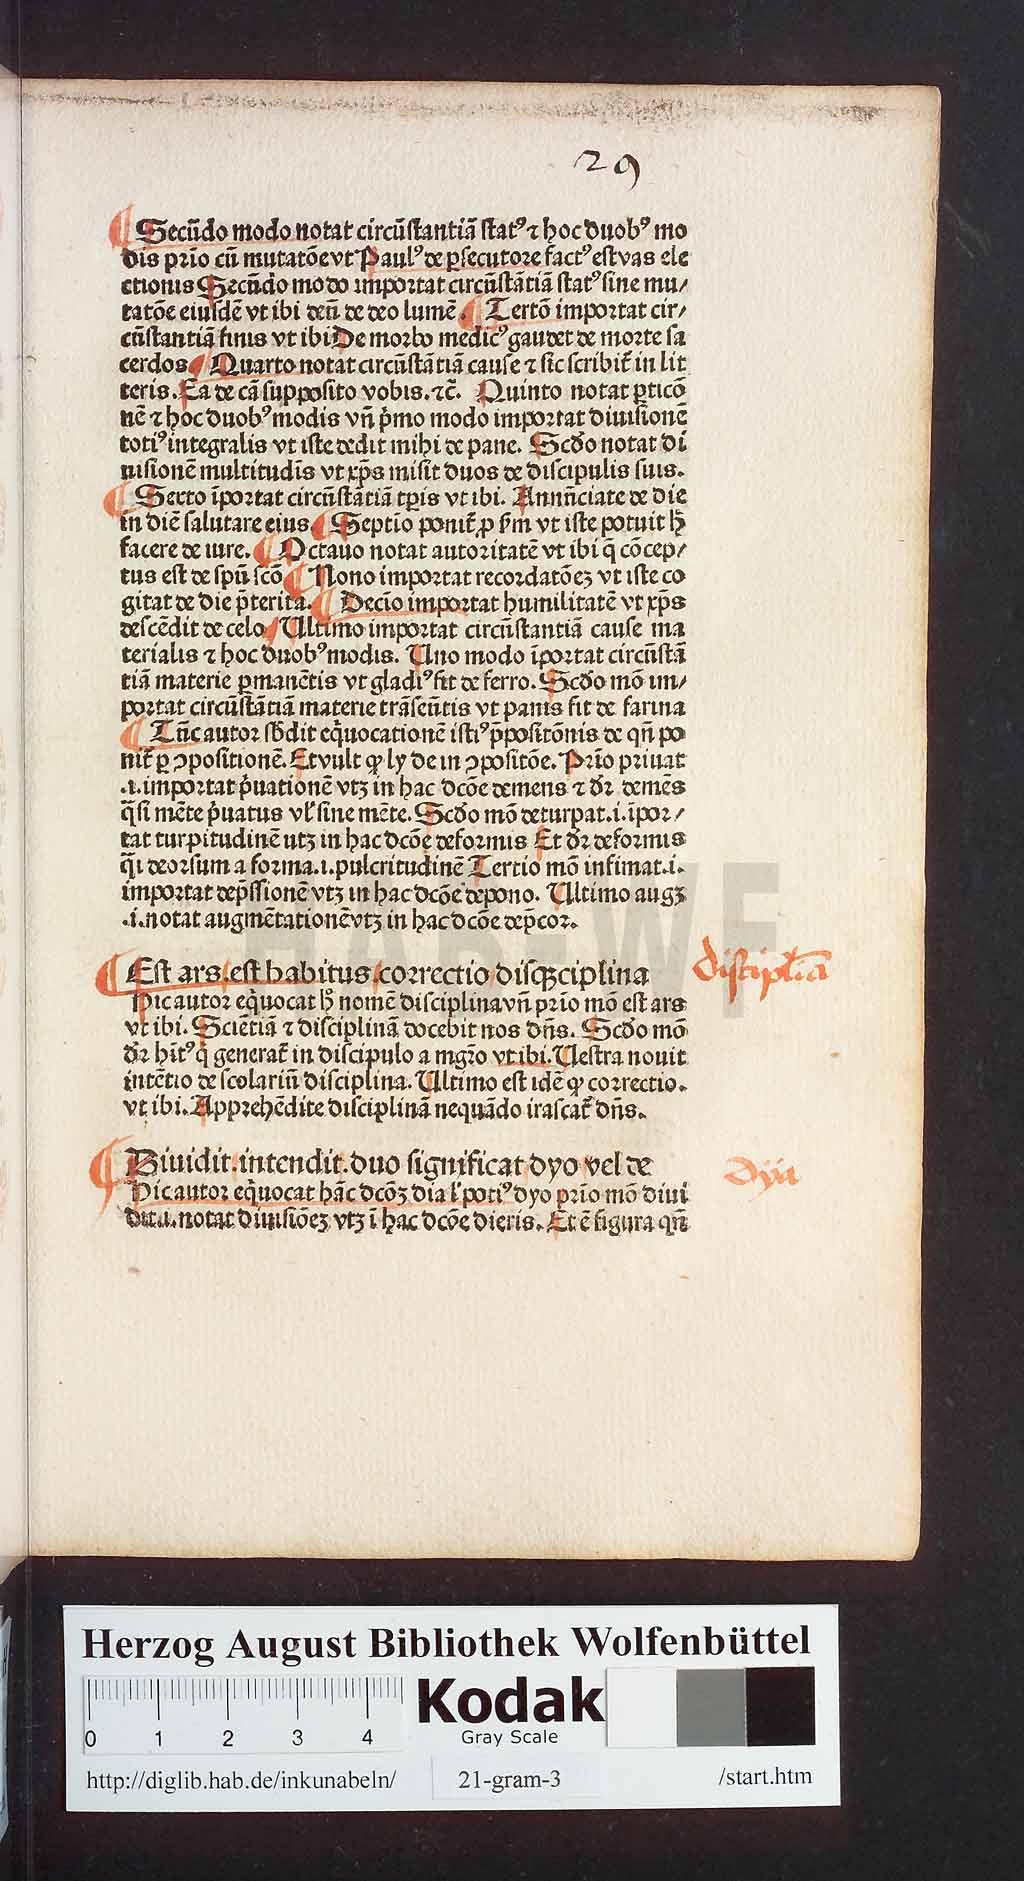 29
¶ Secūdo modo notat circūstantiā statꝰ ⁊ hoc duobꝰ mo
dis prīo cū mutatōe vt Paulꝰ de ꝑsecutore factꝰ est vas ele
ctionis Secūdo modo importat circūstātiā statꝰ sine mu⸗
tatōe eiusdē vt ibi deū de deo lumē. ¶ Tertō importat cir⸗
cūstantiā finis vt ibi De morbo medicꝰ gaudet de morte sa
cerdos ¶ Quarto notat circūstātiā cause ⁊ sic scribit̄ in lit
teris. Ea de cā supposito vobis. ⁊c̄. Quinto notat ꝑticō
nē ⁊ hoc duobꝰ modis vn̄ p̄mo modo importat diuisionē
totiꝰ integralis vt iste dedit mihi de pane. Scd̄o notat di
uisionē multitudīs vt xp̄s misit duos de discipulis suis.
¶ Sexto īportat circūstātiā tꝑis vt ibi. Annūciate de die
in diē salutare eius ¶ Septīo ponit̄ ꝓ s̄m vt iste potuit h̄
facere de iure. ¶ Octauo notat autoritatē vt ibi q̄ cōcep⸗
tus est de spū scō ¶ Nono importat recordatōeꝫ vt iste co
gitat de die p̄terita. ¶ Decīo importat humilitatē vt xp̄s
descēdit de celo ¶ Ultimo importat circūstantiā cause ma
terialis ⁊ hoc duobꝰ modis. Uno modo īportat circūstā
tiā materie ꝑmanētis vt gladiꝰ fit de ferro. Scd̄o mō im⸗
portat circūstātiā materie trāseūtis vt panis fit de farina
¶ Tūc autor sb̄dit eq̄uocationē istiꝰ p̄positōnis de qn̄ po
nit̄ ꝑ ꝯpositionē. Et vult ꝙ ly de in ꝯpositōe. Prīo priuat
.i. importat p̄uationē vtꝫ in hac dcōe demens ⁊ dr̄ demēs
q̄si mēte p̄uatus vl̄ sine mēte. Scd̄o mō deturpat .i. īpor⸗
tat turpitudinē utꝫ in hac dcōe deformis Et dr̄ deformis
q̄i deorsum a forma .i. pulcritudinē Tertio mō infimat .i.
importat dep̄ssionē vtꝫ in hac dcōe depono. Ultimo augꝫ
.i. notat augmētationē vtꝫ in hac dcōe dep̄cor.
¶ Est ars. est habitus correctio disqꝫ ciplina
disciplīa
Hic autor eq̄uocat h̄ nomē disciplina vn̄ prīo mō est ars
vt ibi. Sciētiā ⁊ disciplinā docebit nos dn̄s. Scd̄o mō
dr̄ hītꝰ q̄ generat̄ in discipulo a mgr̄o vt ibi. Uestra nouit
intētio de scolariū disciplina. Ultimo est idē ꝙ correctio.
vt ibi. Apprehēdite disciplinā nequādo irascat̄ dn̄s.
¶ Diuidit. intendit. duo significat dyo vel de
dya
Hic autor eq̄uocat hāc dcōꝫ dia l̄ potiꝰ dyo prīo mō diui
dit .i. notat diuisiōeꝫ vtꝫ ī hac dcōe dieris. Et ē figura qn̄
HAB-WF
Herzog August Bibliothek Wolfenbüttel
0 1 2 3 4
Kodak
Gray Scale
http://diglib.hab.de/inkunabeln/ 21-gram-3 /start.htm